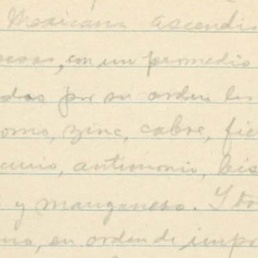 Mexicana ascendi
esos, con un promedio
das por su orden les
omo, zinc, cobre, fie
curio, antimonio, bis
y manganeso. Y to
mo, en orden de impo